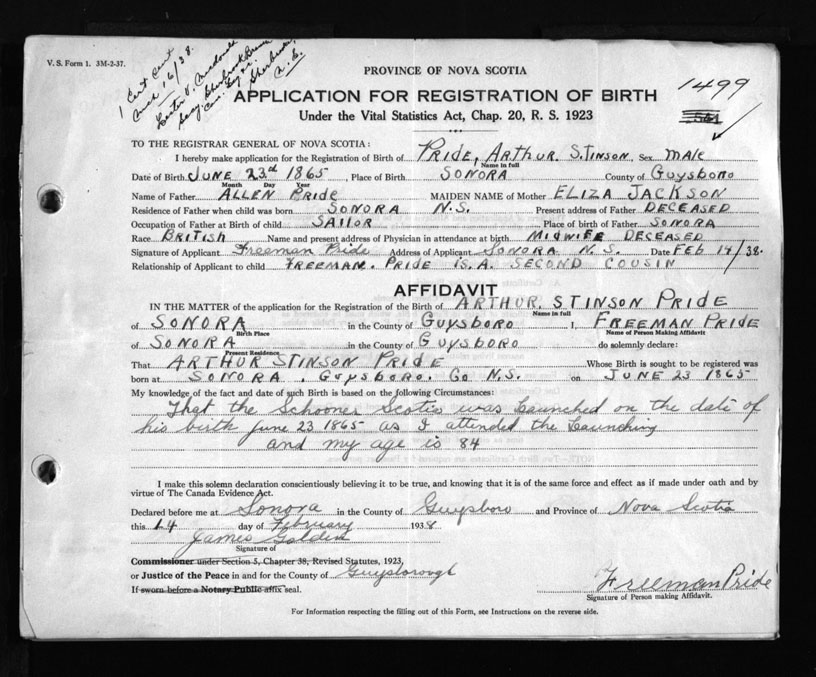 V. S. Form 1. 3M-2-37.
1 Cert Sent
16/38.
Lester V.
Secy. Sherbrooke Branch
Can. Legion
Sherbrooke
N.S.
PROVINCE OF NOVA SCOTIA
1499
APPLICATION FOR REGISTRATION OF BIRTH
Under the Vital Statistics Act, Chap. 20, R. S. 1923
TO THE REGISTRAR GENERAL OF NOVA SCOTIA:
I hereby make application for the Registration of Birth of PRIDE, ARTHUR. STINSON, Sex MALE
Name in full
Date of Birth JUNE 23rd 1865, Place of Birth SONORA County of Guysboro
Month Day Year
Name of Father ALLEN Pride MAIDEN NAME of Mother ELIZA JACKSON
Residence of Father when child was born SONORA N.S. Present address of Father DECEASED
Occupation of Father at Birth of child SAILOR Place of birth of Father SONORA
Race BRITISH Name and present address of Physician in attendance at birth MIDWIFE DECEASED
Signature of Applicant Freeman Pride Address of Applicant SONORA N. S. Date FEB 14/38.
Relationship of Applicant to child FREEMAN. PRIDE IS. A. SECOND COUSIN
AFFIDAVIT
IN THE MATTER of the application for the Registration of the Birth of ARTHUR. STINSON PRIDE
Name in full
of SONORA in the County of Guysboro I, FREEMAN PRIDE
Birth Place Name of Person Making Affidavit
of SONORA in the County of Guysboro do solemnly declare:
Present Residence
That ARTHUR STINSON PRIDE Whose Birth is sought to be registered was
born at SONORA. Guysboro. Co N.S. on JUNE 23 1865
My knowledge of the fact and date of such Birth is based on the following Circumstances:
That the Schooner Scotia was Launched on the date of
his birth June 23 1865 as I attended the Launching
and my age is 84
I make this solemn declaration conscientiously believing it to be true, and knowing that it is of the same force and effect as if made under oath and by
virtue of The Canada Evidence Act.
Declared before me at Sonora in the County of Guysboro and Province of Nova Scotia
this 14 day of February 1938
James Golden
Signature of
Commissioner under Section 5, Chapter 38, Revised Statutes, 1923,
or Justice of the Peace in and for the County of Guysborough
If sworn before a Notary Public affix seal.
Freeman Pride
Signature of Person making Affidavit.
For Information respecting the filling out of this Form, see Instructions on the reverse side.